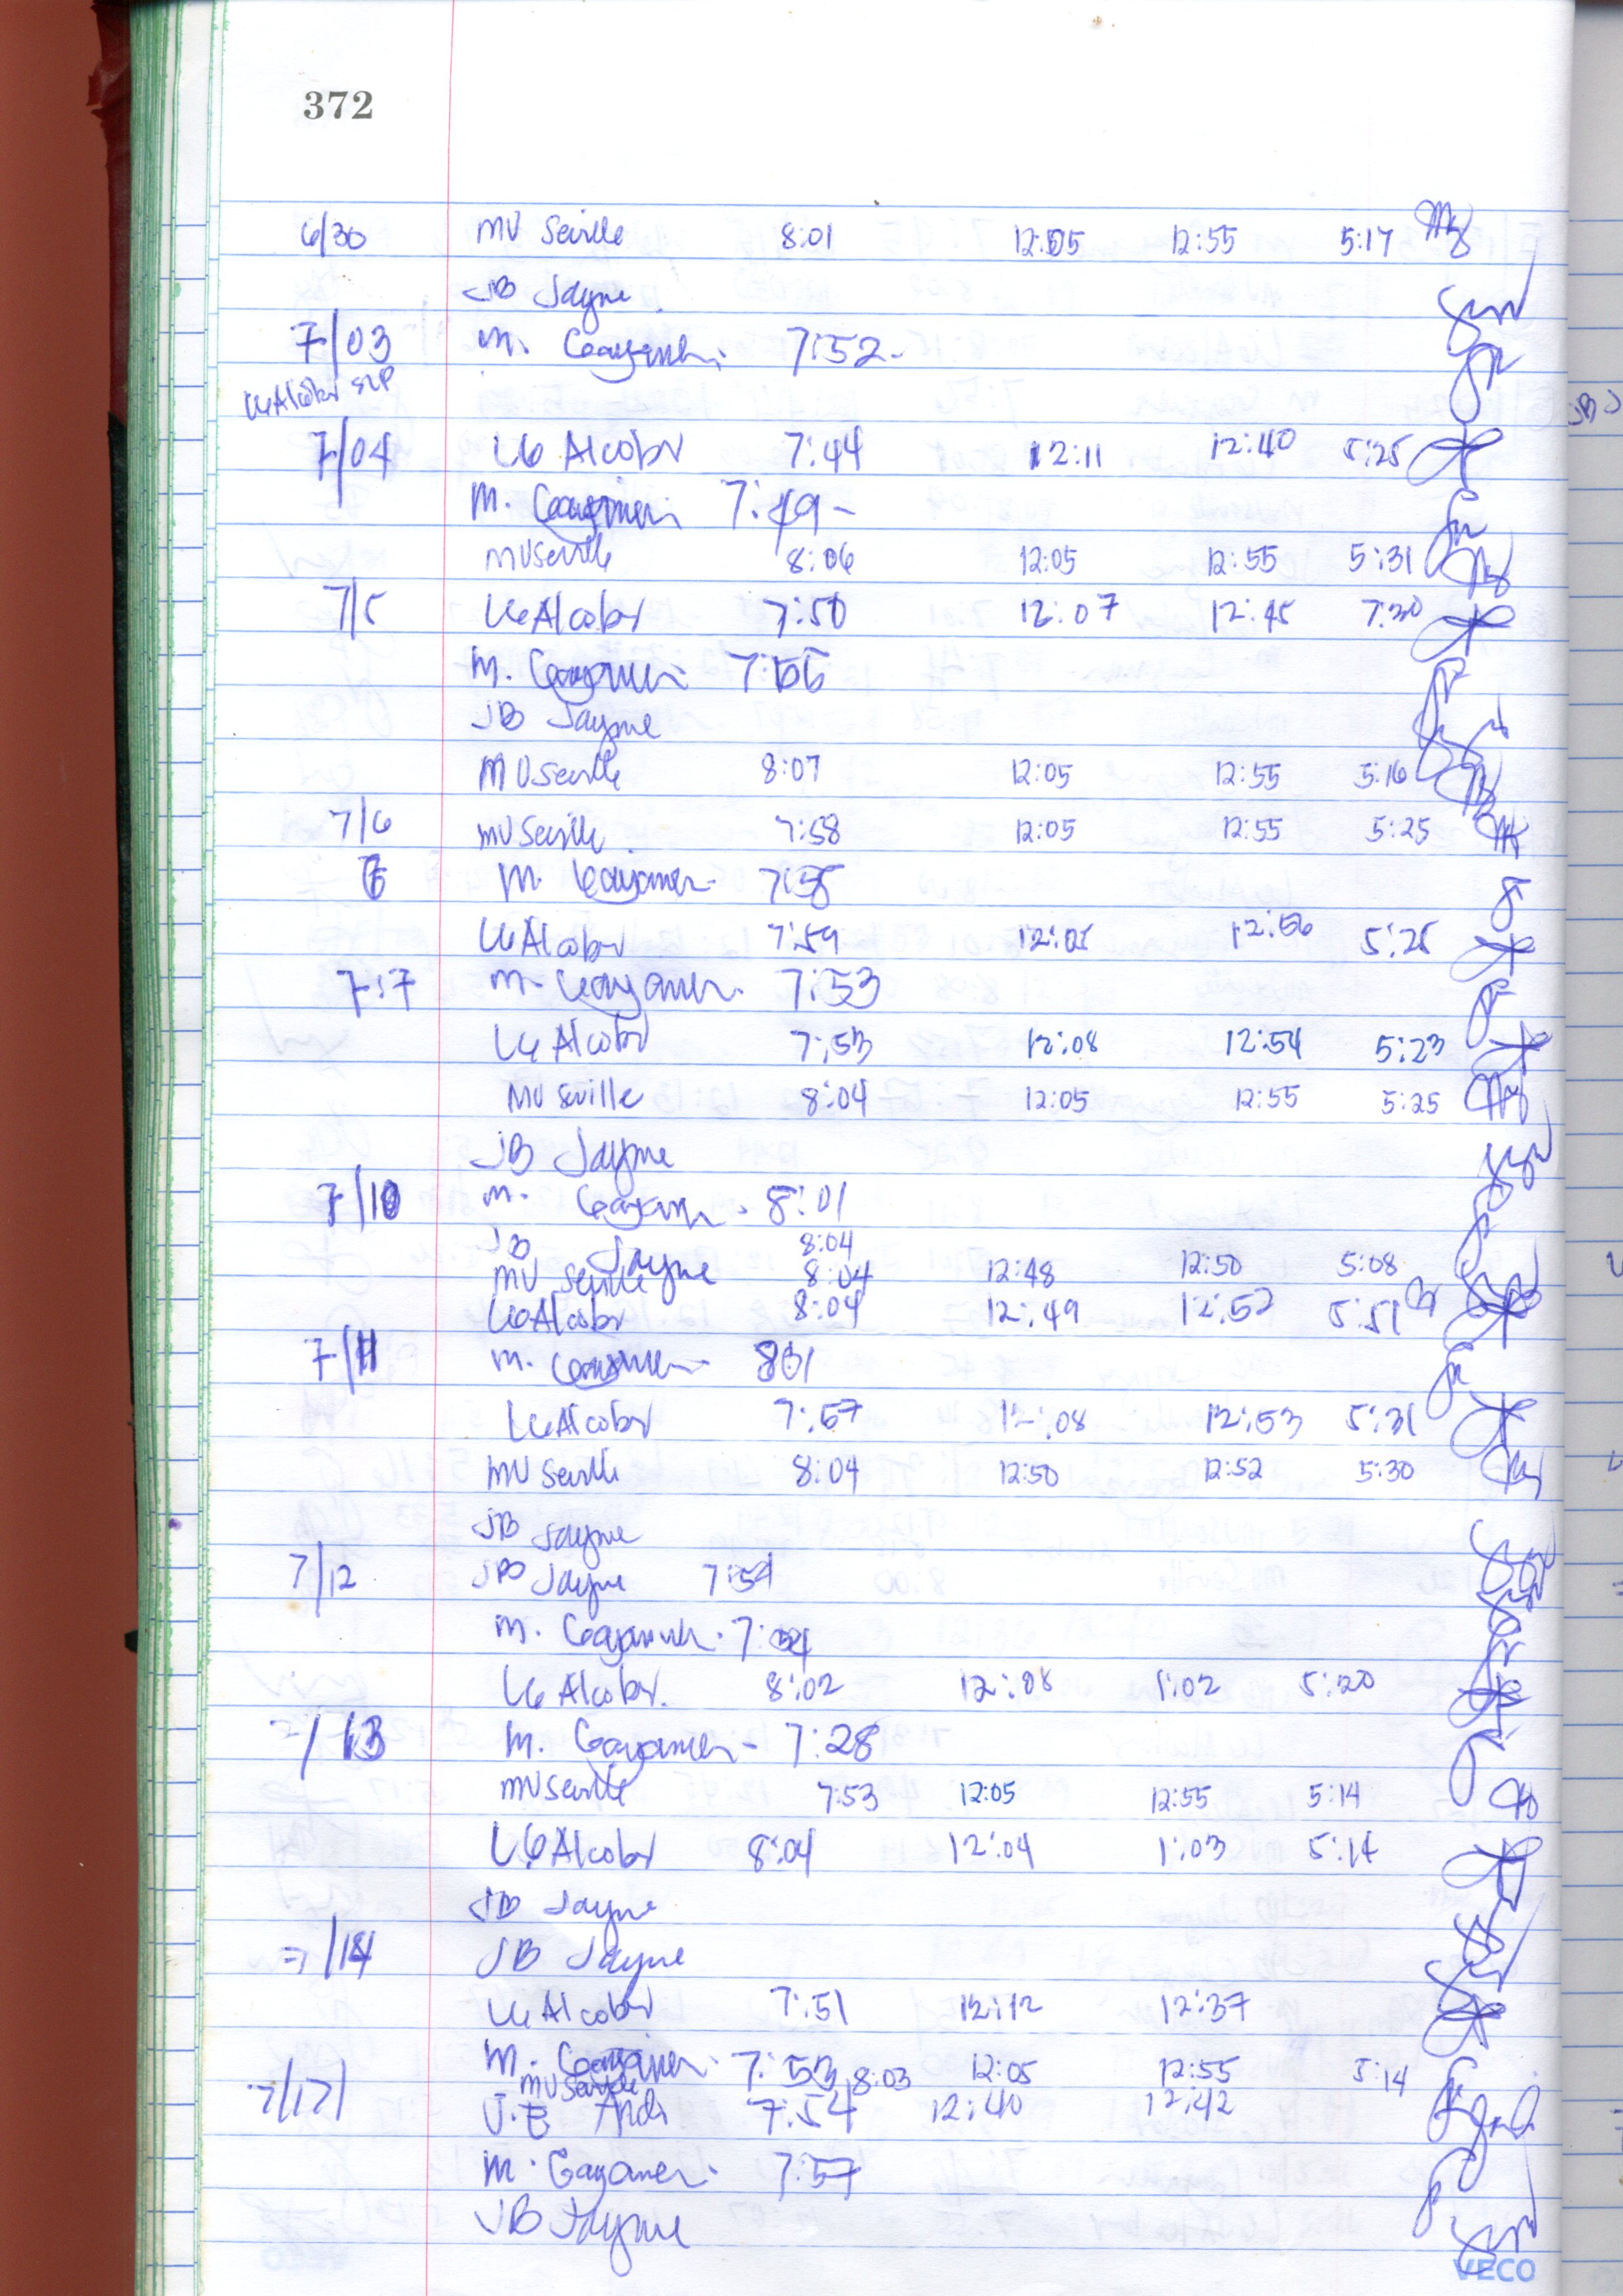 372
6/30 MV Seville 8:01 12:05 12:55 5:17
JB Jayme
7/03 M. Gayaner. 7:52-
LG Alcober SLP
7/04 LG Alcober 7:44 12:11 12:40 5:25
M. Gayaner 7:49-
MV Seville 8:06 12:05 12:55 5:31
7/5 LG Alcober 7:50 12:07 12:45 7:30
M. Gayaner 7:55
JB Jayme
MV Seville 8:07 12:05 12:55 5:16
7/6 MV Seville 7:58 12:05 12:55 5:25
M. Gayaner. 7:58
LG Alcober 7:59 12:05 12:56 5:25
7:7 M. Gayaner. 7:53
LG Alcober 7:53 12:08 12:54 5:23
MV Seville 8:04 12:05 12:55 5:25
JB Jayme
7/10 M. Gayaner. 8:01
JB Jayme 8:04
MV Seville 8:04 12:48 12:50 5:08
LG Alcober 8:04 12:49 12:52 5:51
7/11 M. Gayaner- 801
LG Alcober 7:57 12:08 12:53 5:31
MV Seville 8:04 12:50 12:52 5:30
JB Jayme
7/12 JB Jayme 7:54
M. Gayaner. 7:54
LG Alcober. 8:02 12:08 1:02 5:20
7/13 M. Gayaner- 7:28
MV Seville 7:53 12:05 12:55 5:14
LG Alcober 8:04 12:04 1:03 5:14
JB Jayme
7/14 JB Jayme
LG Alcober 7:51 12:12 12:37
M. Gayaner. 7:53
MV Seville 8:03 12:05 12:55 5:14
7/17 7:54 12:40 12:42
M. Gayaner. 7:57
JB Jayme
VECO